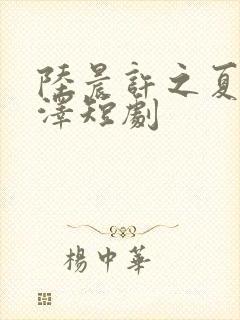 陸晨許之夏
澤短劇
楊中華